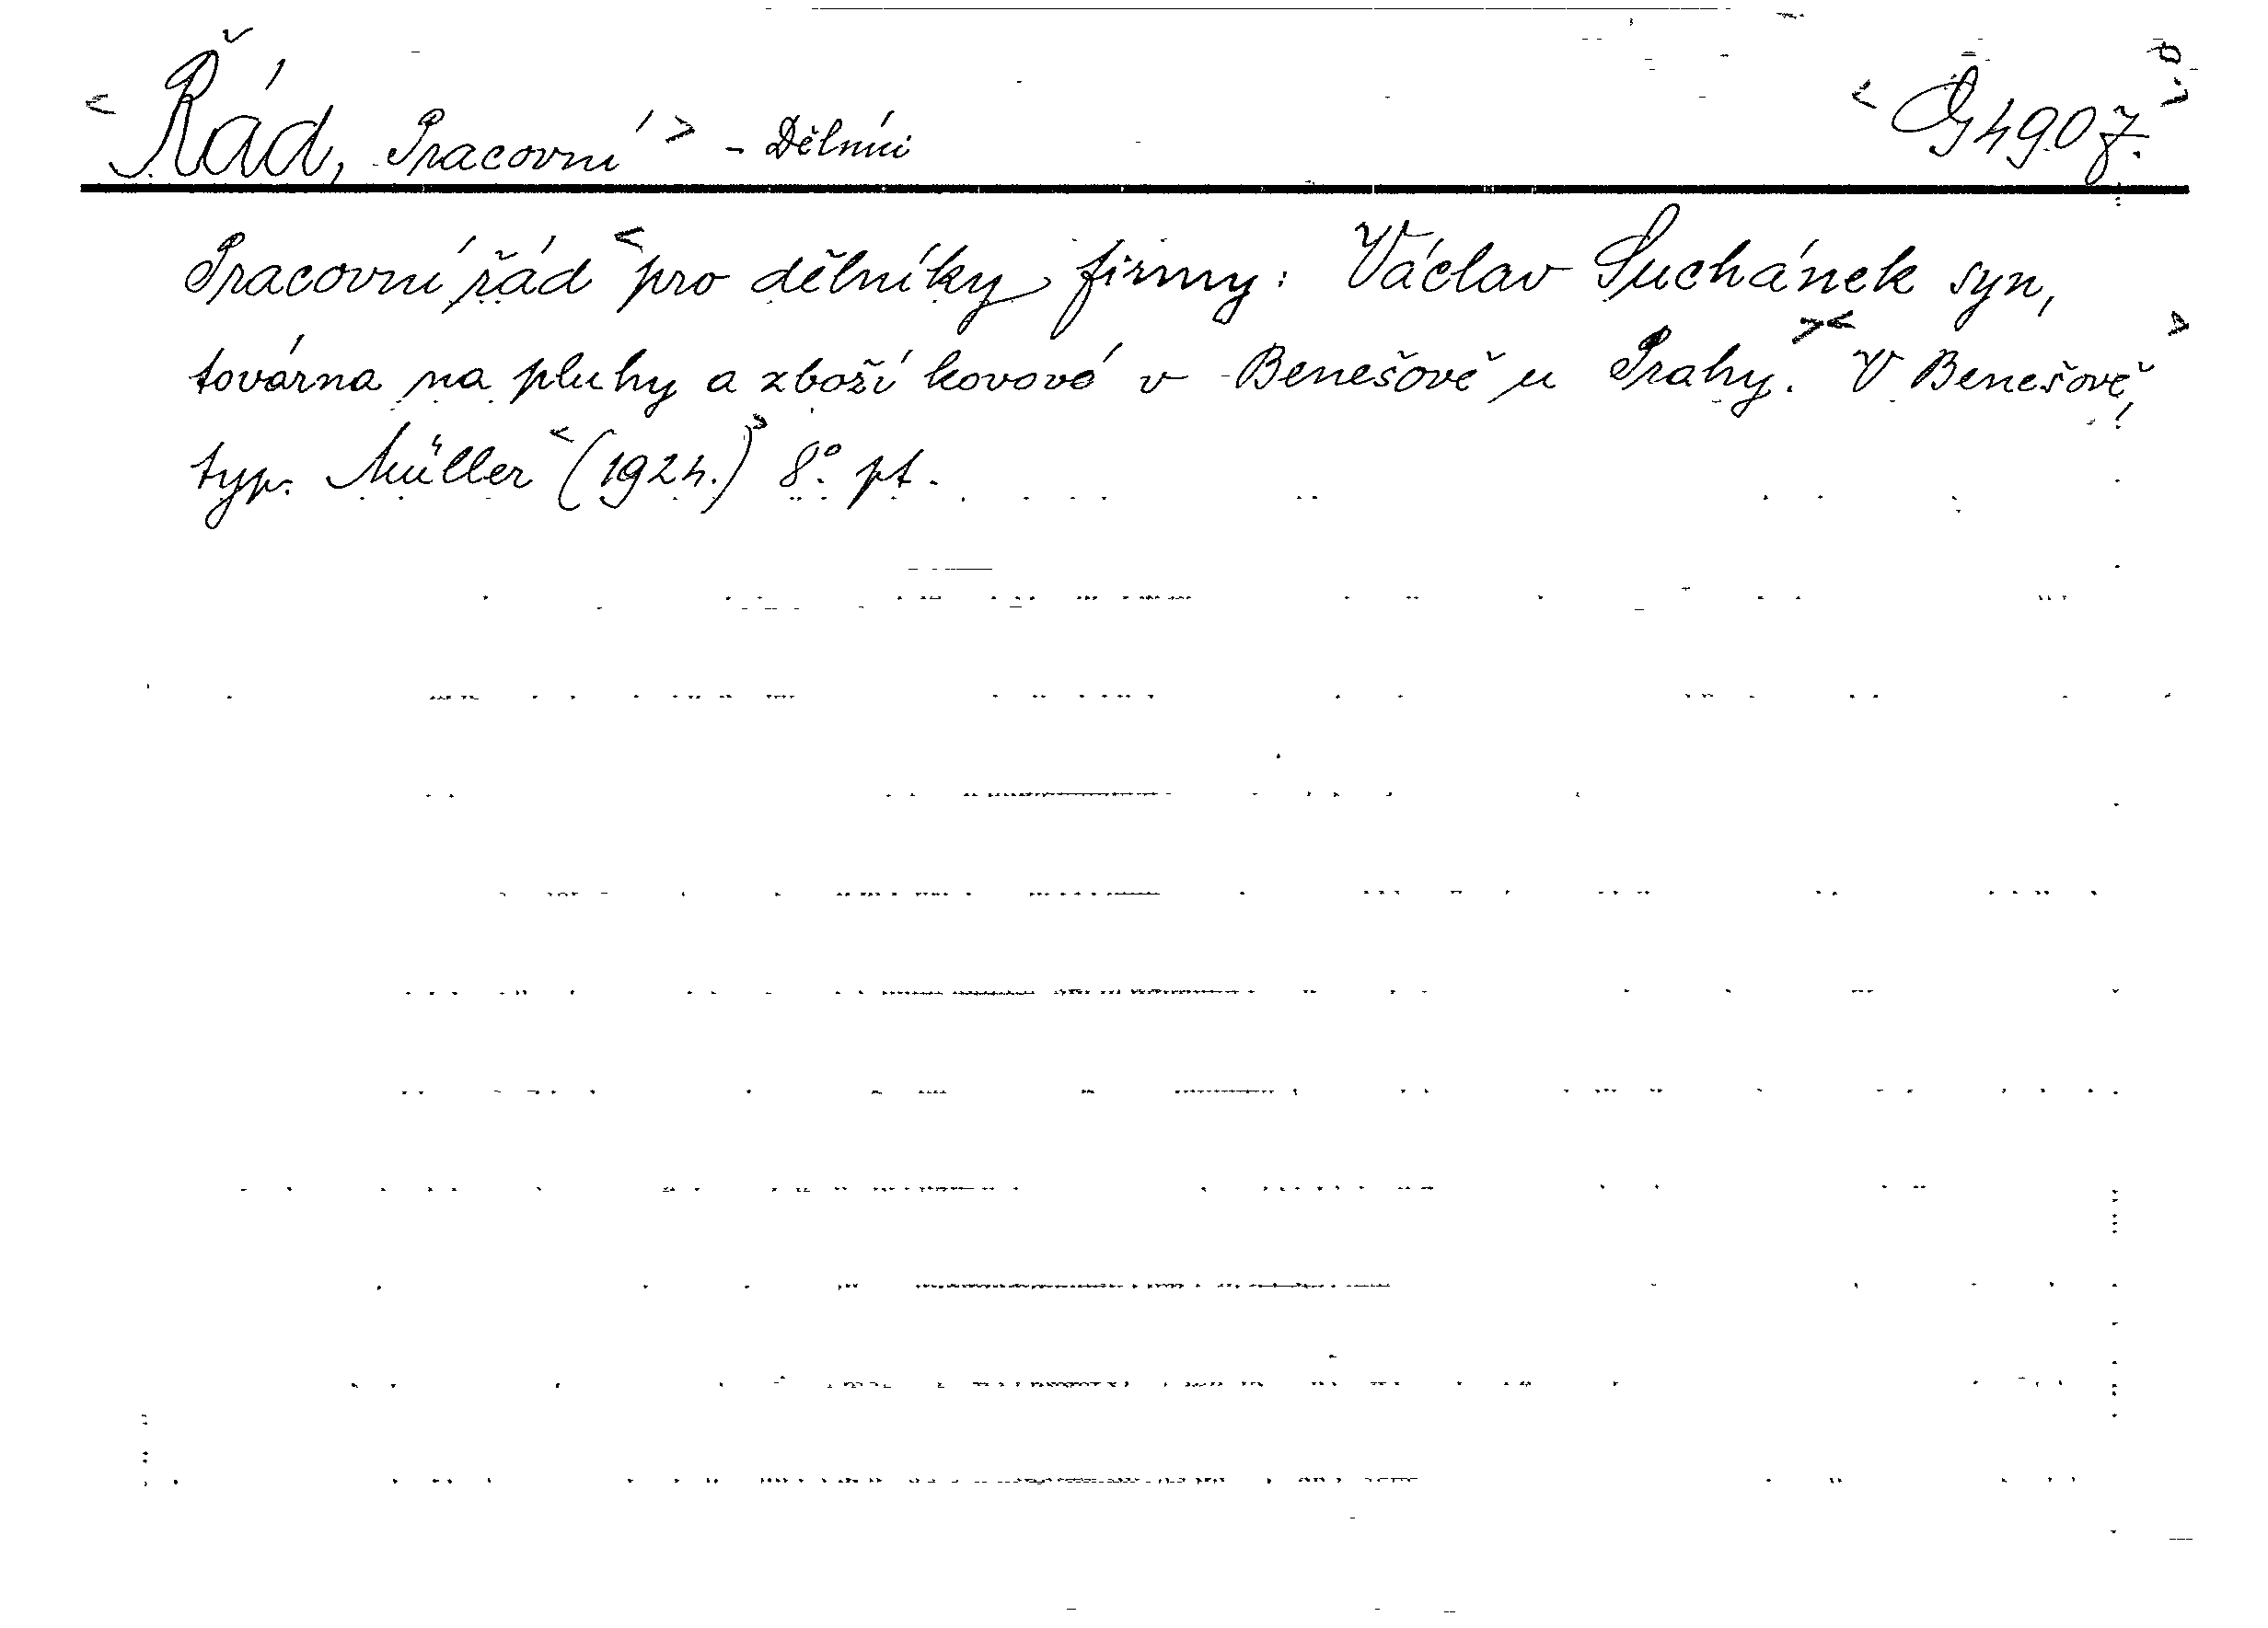 <Řád, Pracovní> - Dělníci <G 4907.>
Pracovní řád <pro dělníky firmy: Václav Suchánek syn,
továrna na pluhy a zboží kovové v Benešově u Prahy.>< V Benešově,>
typ. Müller <(1924.)> 8°. pt.